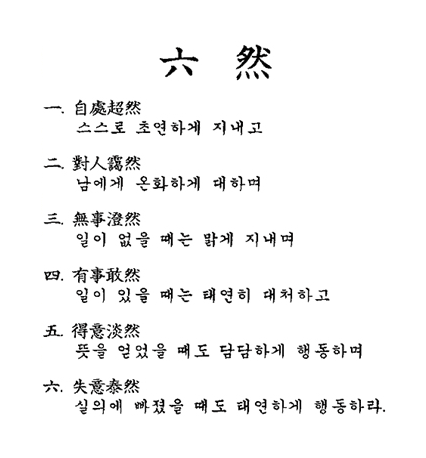 六 然
一. 自處超然
스스로 초연하게 지내고
二. 對人靄然
남에게 온화하게 대하며
三. 無事澄然
일이 없을 때는 맑게 지내며
四. 有事敢然
일이 있을 때는 태연히 대처하고
五. 得意淡然
뜻을 얻었을 때도 담담하게 행동하며
六. 失意泰然
실의에 빠졌을 때도 태연하게 행동하라.